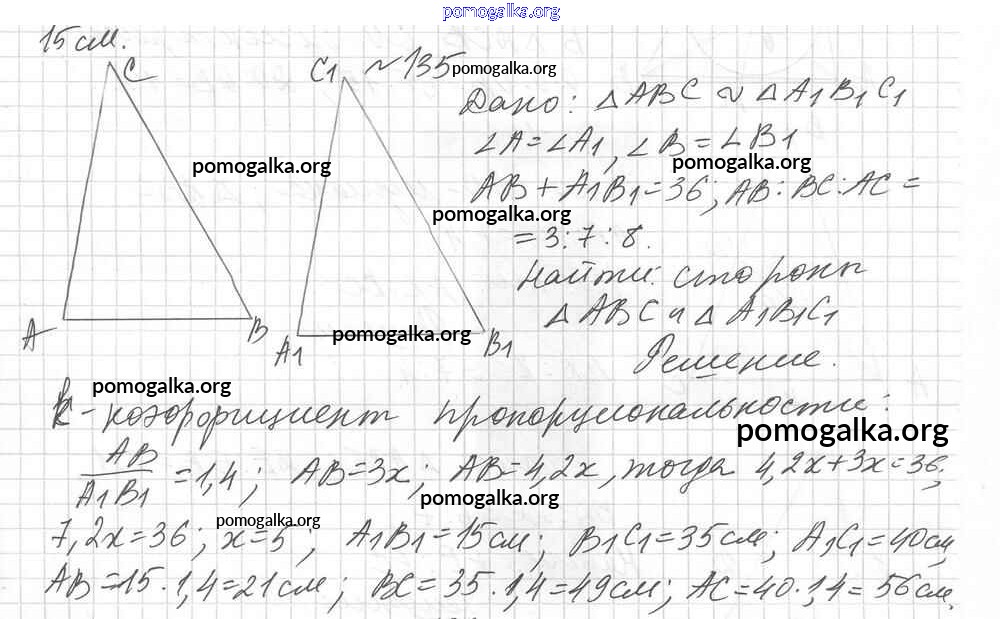 pomogalka.org
15 см.
C
C1
№135
pomogalka.org
Дано: △ABC ∾ △A1B1C1
∠A=∠A1, ∠B=∠B1
pomogalka.org
pomogalka.org
AB+A1B1=36; AB:BC:AC=
pomogalka.org
=3:7:8.
Найти: стороны
△ABC и △A1B1C1
A
B
A1
pomogalka.org
B1
Решение.
pomogalka.org
k - коэффициент пропорциональности:
pomogalka.org
AB/A1B1=1,4; AB=3x; AB=4,2x, тогда 4,2x+3x=36;
pomogalka.org
pomogalka.org
7,2x=36; x=5; A1B1=15см; B1C1=35см; A1C1=40см,
AB=15·1,4=21см; BC=35·1,4=49см; AC=40·1,4=56см.